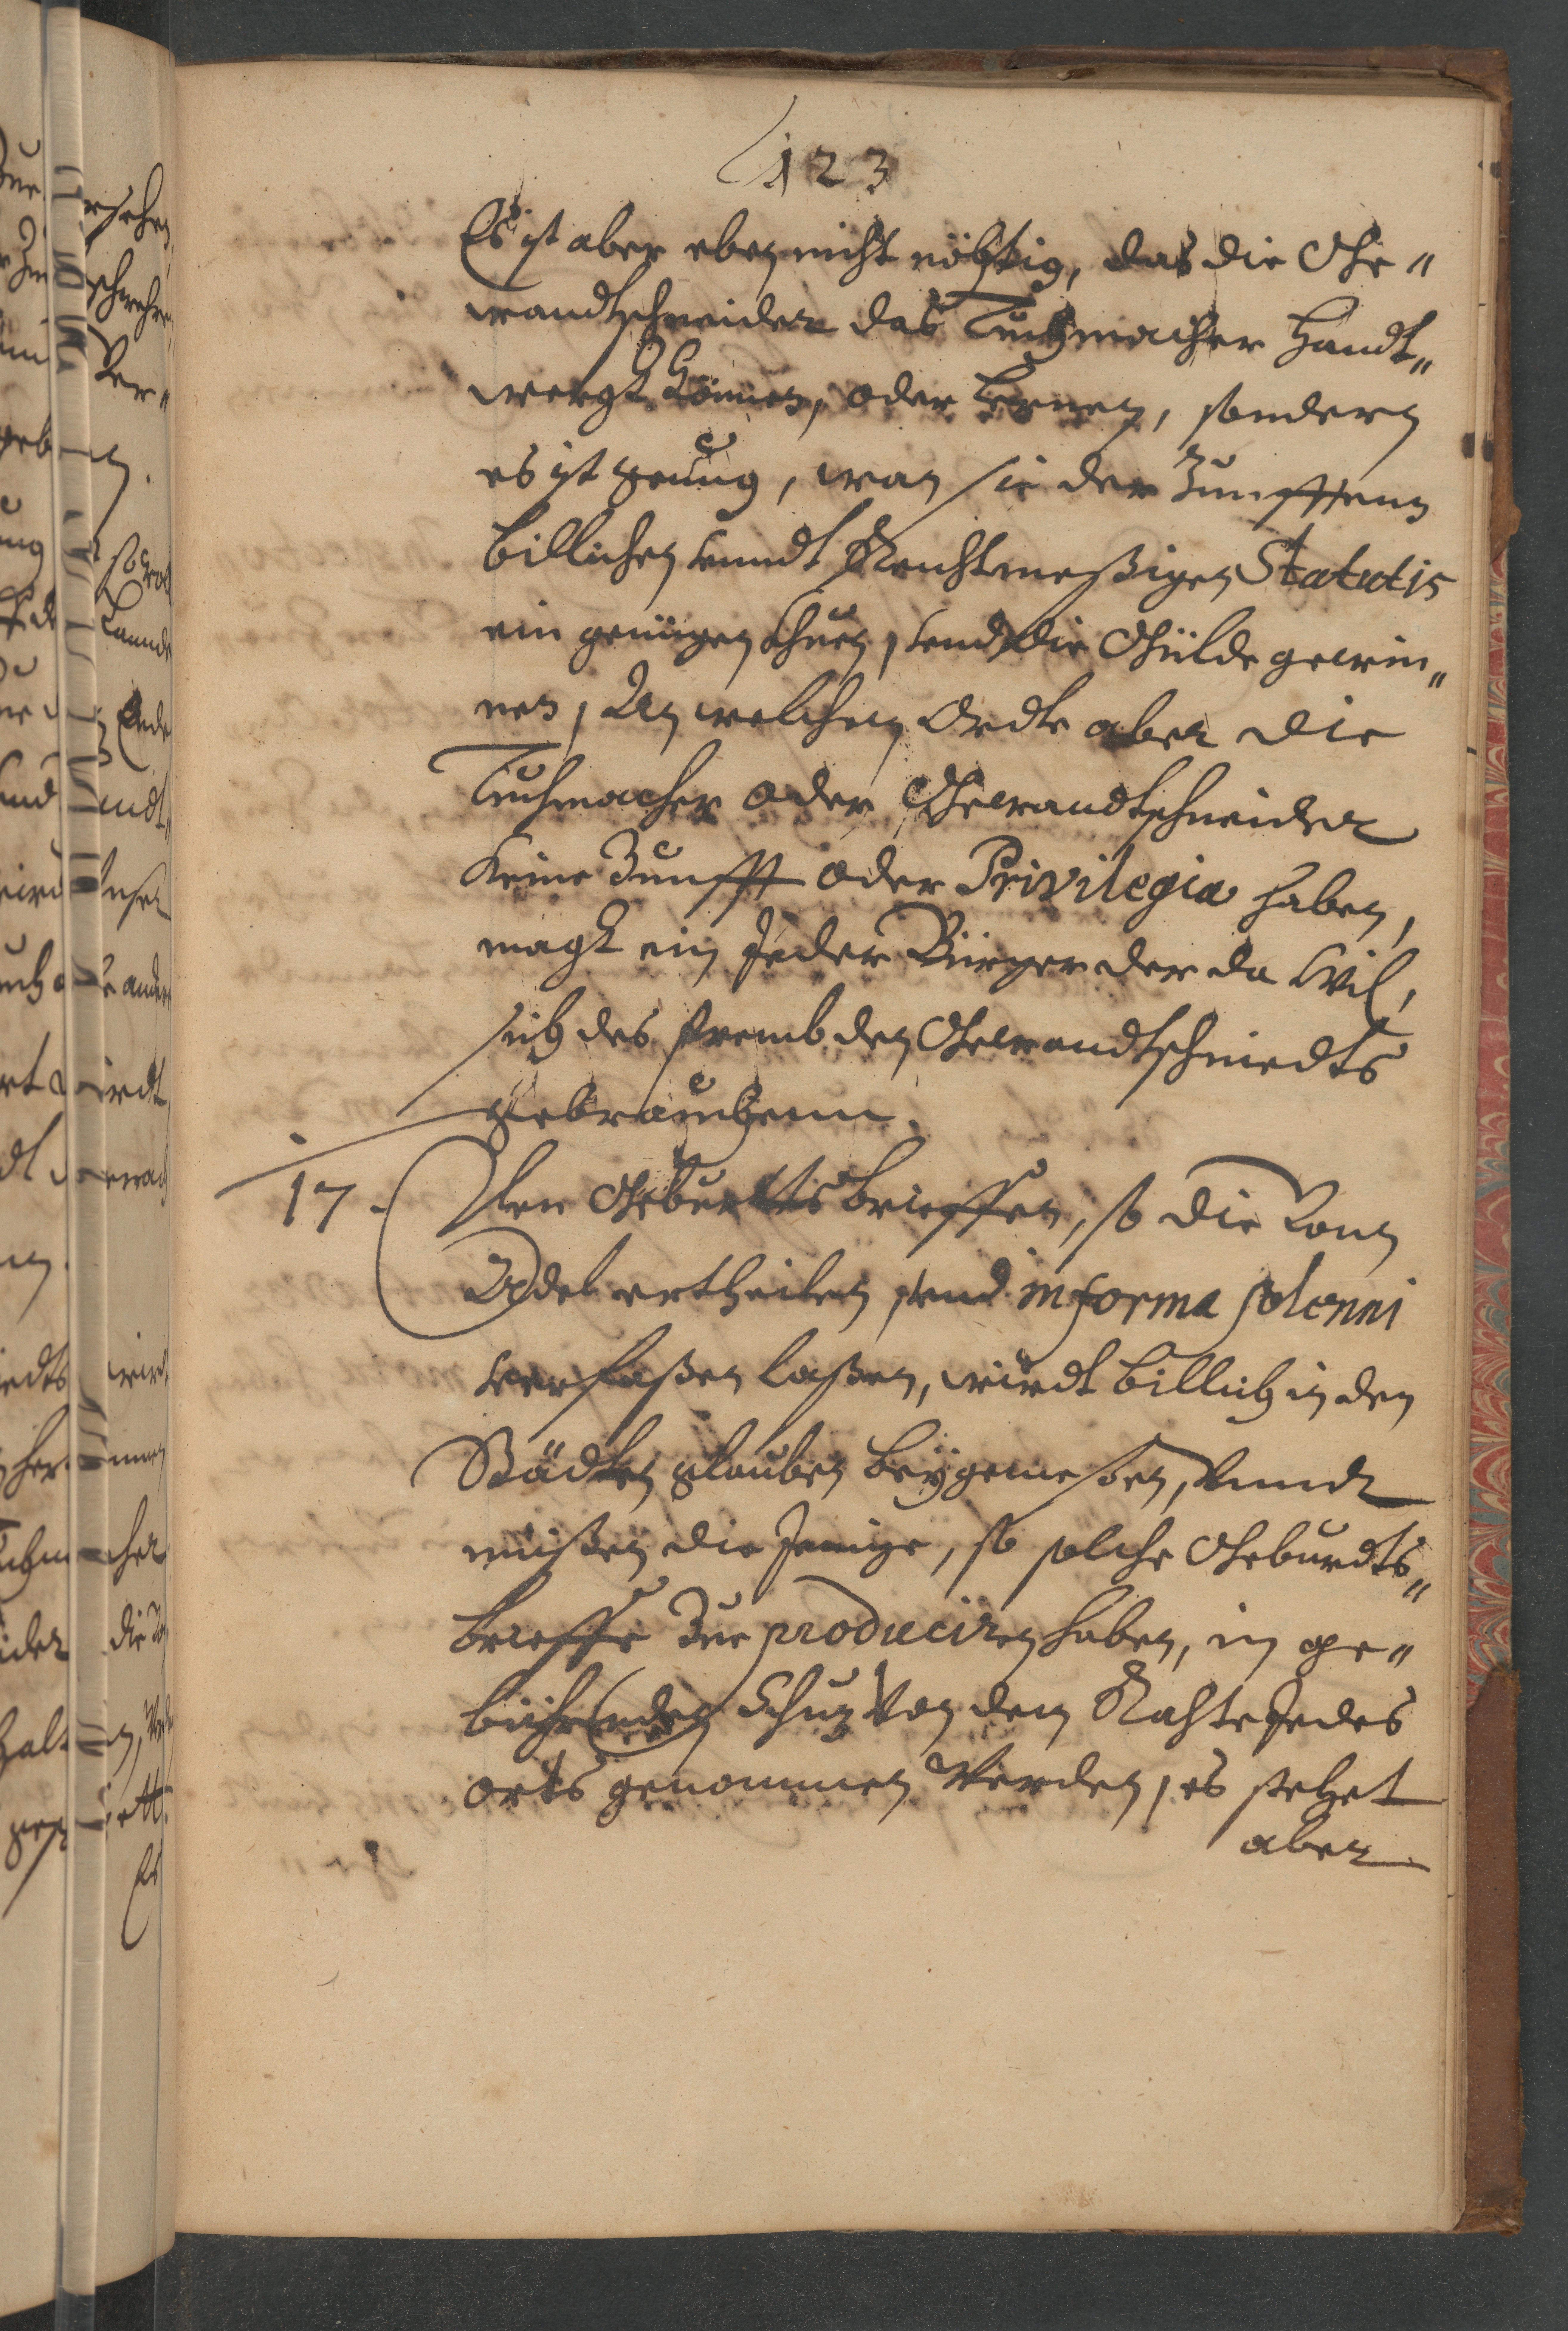 123
Es ist aber eben nicht nöhtig, das die Ge„
wandtschneider das Tuchmacher Handt„
wergk können, oder lernen, sondern
es ist genug, wan sie der Zunfften
billichen undt Rechtmeßigen Statutis
ein genügen thuen, und die Gülde gewin„
nen, An welchen Ordte aber die
Tuchmacher oder Gewandtschneider
keine Zunfft oder Privilegia haben,
magk ein Jeder Bürger der da wil,
sich des frembden Gewandtschniedts
gebrauchenn.
17. Den Geburtts brieffen, so die Vonn
Adel ertheilen, und in forma solenni
verfaßen laßen, wirdt billich in den
Städten glauben beygemeßen, Unndt
müßen die Jenige, so solche Geburdts„
brieffe Zue produciren haben, in ge„
bührenden Schuz Von dem Rahte Jedes
orts genommen Werden, es stehet
aber